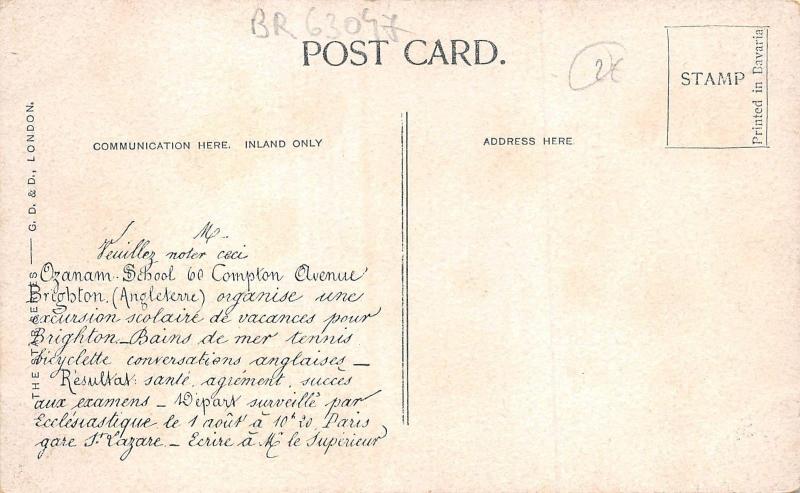 BR 63047
POST CARD.
2€
STAMP
Printed in Bavaria
COMMUNICATION HERE. INLAND ONLY
ADDRESS HERE
THE STAR SERIES — G. D. & D., LONDON.
M
Veuillez noter ceci
Ozanam-School 60 Compton Avenue
Brighton. (Angleterre) organise une
excursion scolaire de vacances pour
Brighton_Bains de mer tennis
bicyclette conversations anglaises —
Résultat: santé, agrément, succès
aux examens — Départ surveillé par
Ecclésiastique le 1 août à 10h20, Paris
gare St Lazare_ Ecrire à Mr le Supérieur